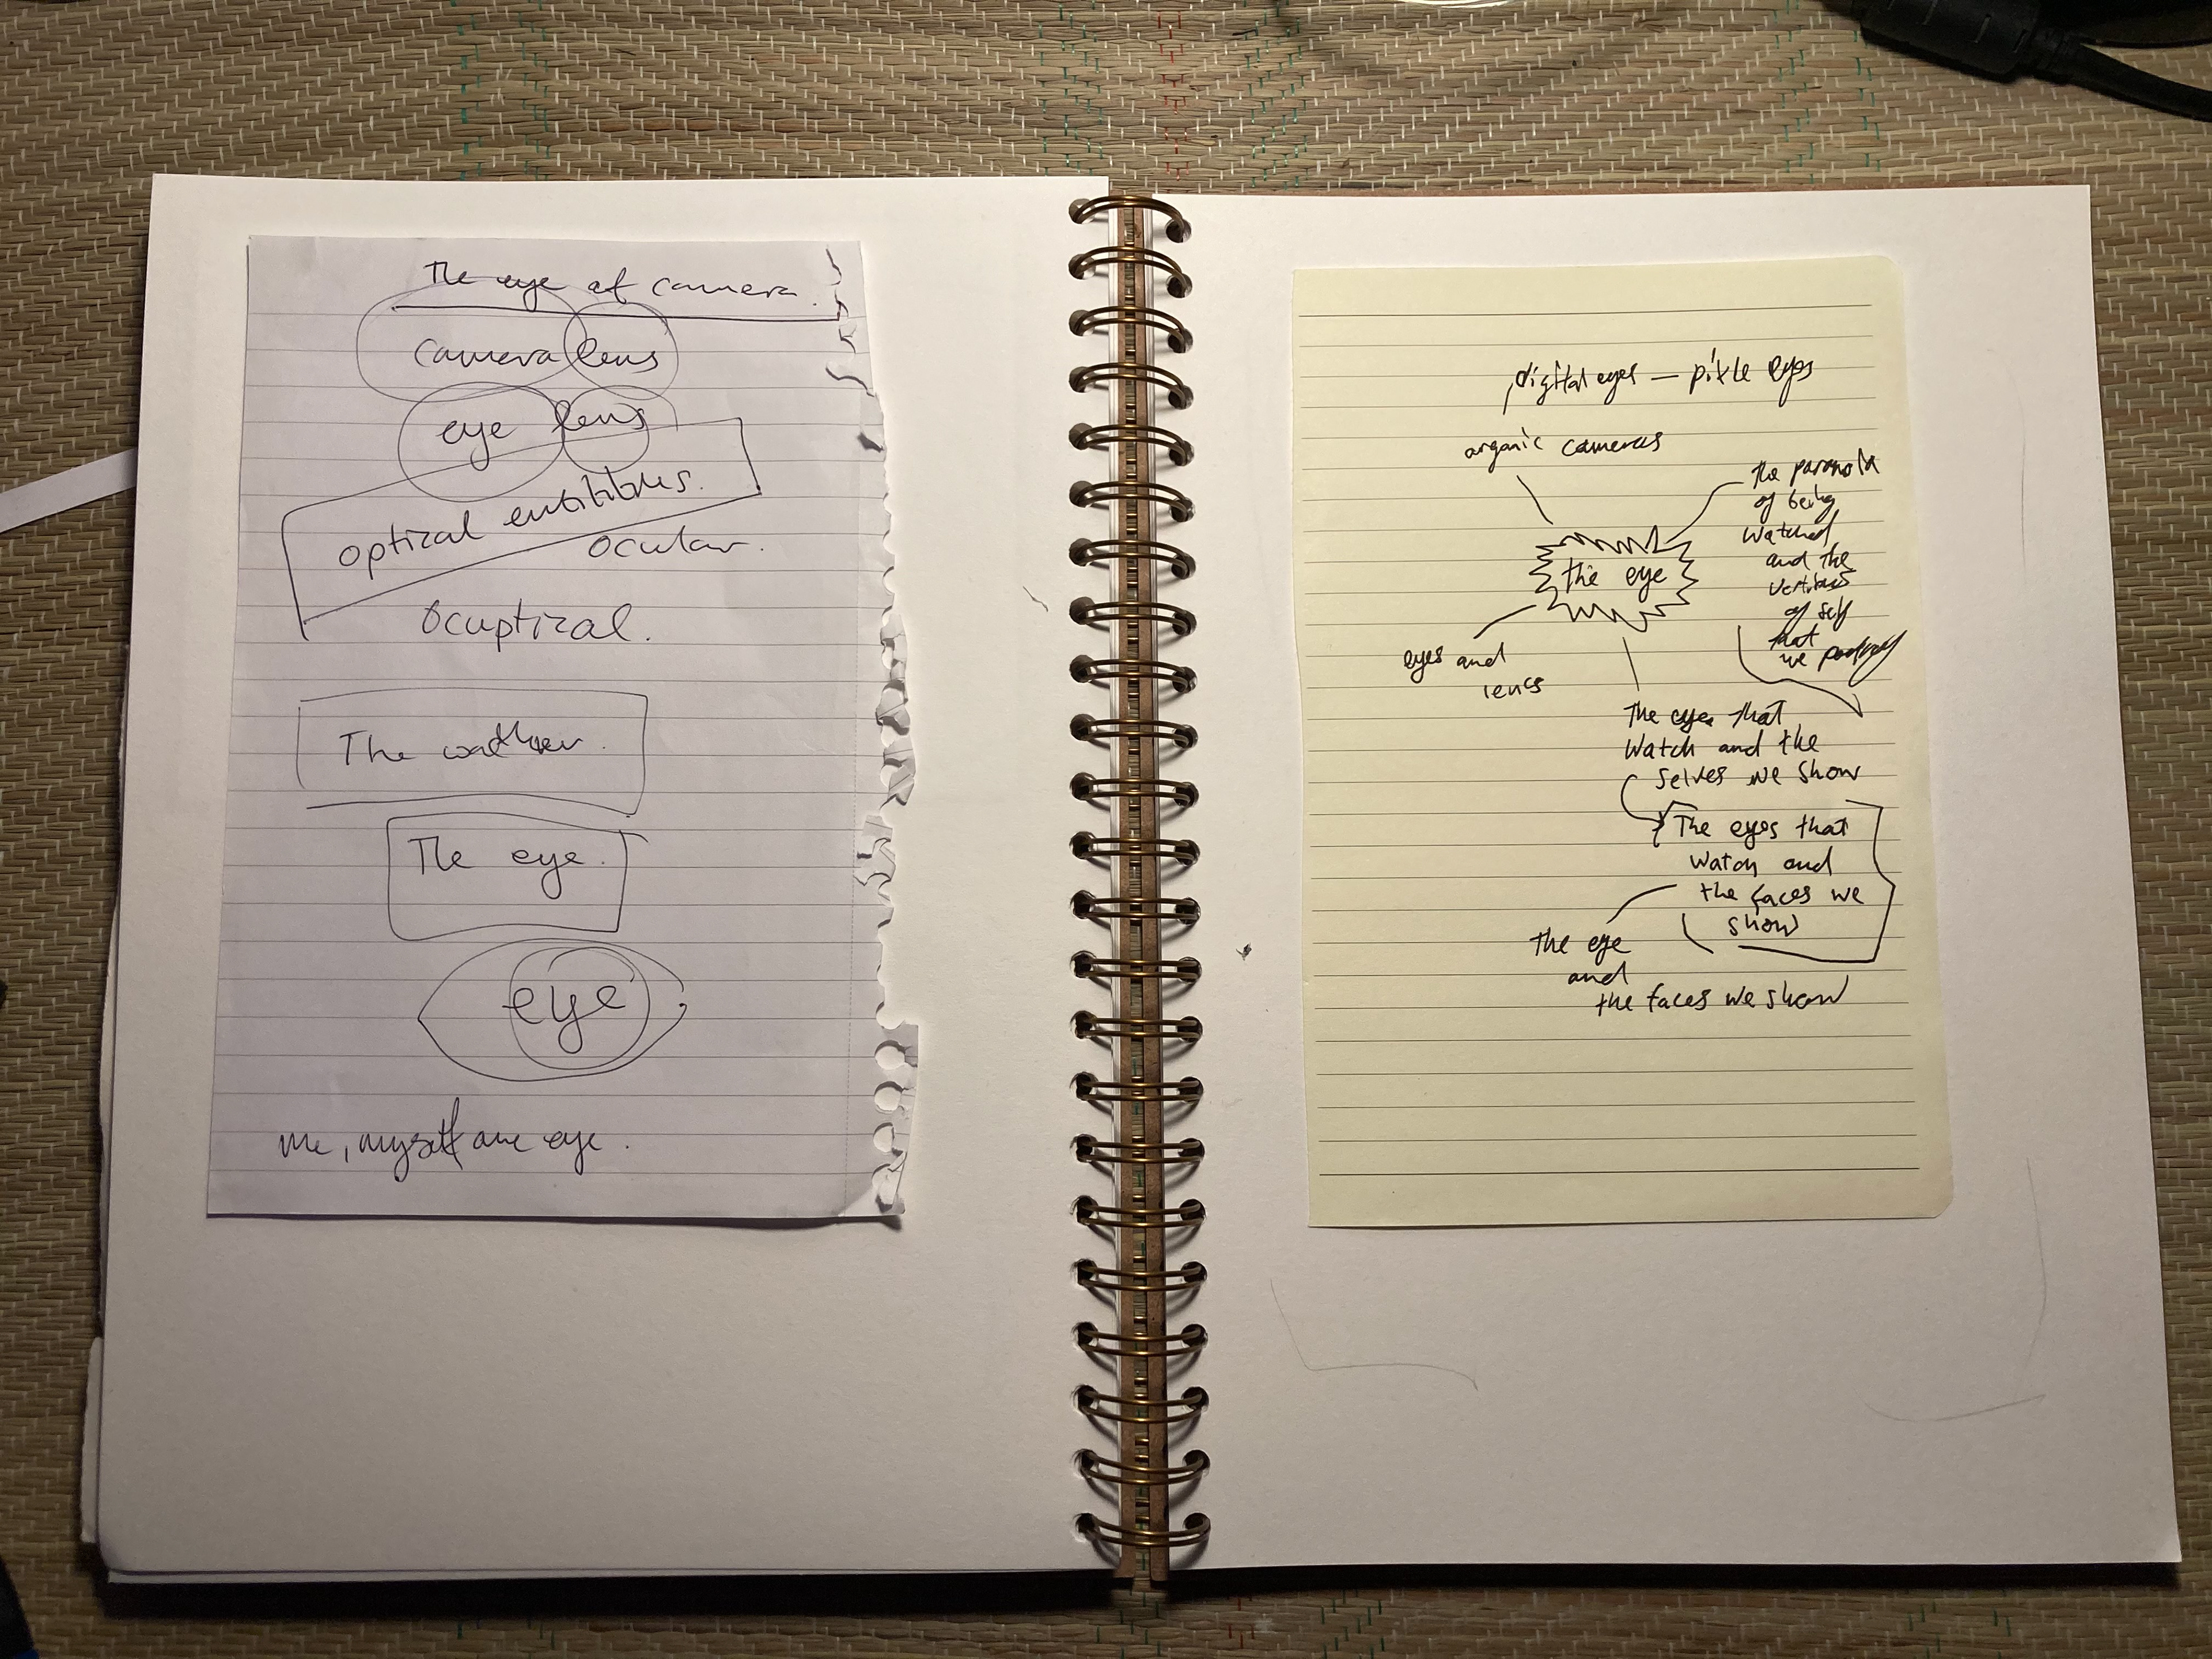 The eye of camera.
camera lens
eye lens
optical
ocular.
Ocuptical.
The
The eye.
eye
me, myself are eye.
digital eyes — pixle eyes
organic cameras
the paranoia
of being
watched
and the
of self
that
we portray
the eye
eyes and
lences
The eyes that
watch and the
selves we show
The eyes that
watch and
the faces we
show
the eye
and
the faces we show